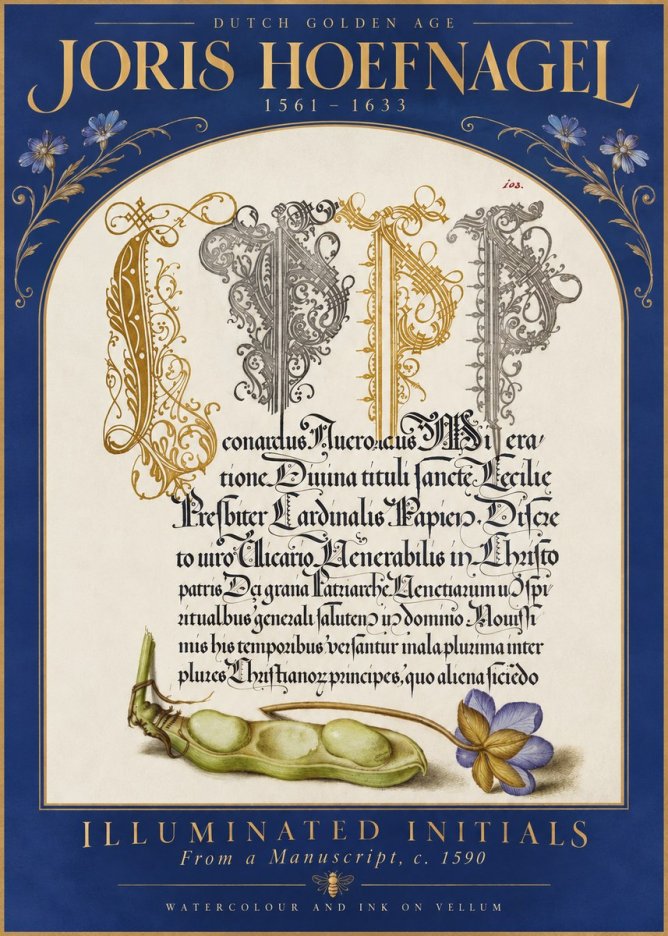 DUTCH GOLDEN AGE
JORIS HOEFNAGEL
1561 – 1633
103.
tione Diuina tituli sancte Cecilie
Presbiter Cardinalis Papien. Discre
to uiro Vicario Venerabilis in Christo
patris Dei
Patriarche Venetiarum
spi
ritualbus generali salutem
domino Nouissi
mis his temporibus versantur mala plurima inter
plures Christianoz principes, quo aliena
ILLUMINATED INITIALS
From a Manuscript, c. 1590
WATERCOLOUR AND INK ON VELLUM